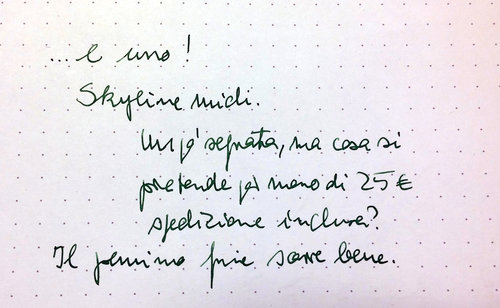 ...e uno!
Skyline midi.
Un po' segnata, ma cosa si
pretende per meno di 25€
spedizione inclusa?
Il pennino fine scorre bene.